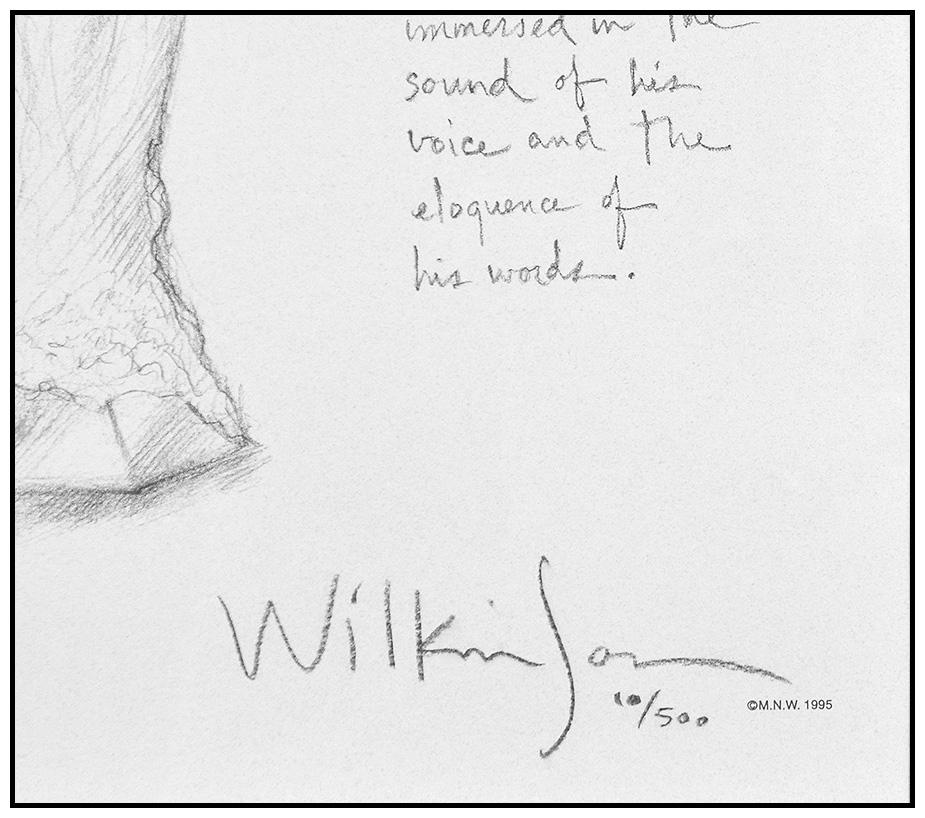 immersed in the
sound of his
voice and the
eloquence of
his words.
Wilkinson
10/500
©M.N.W. 1995